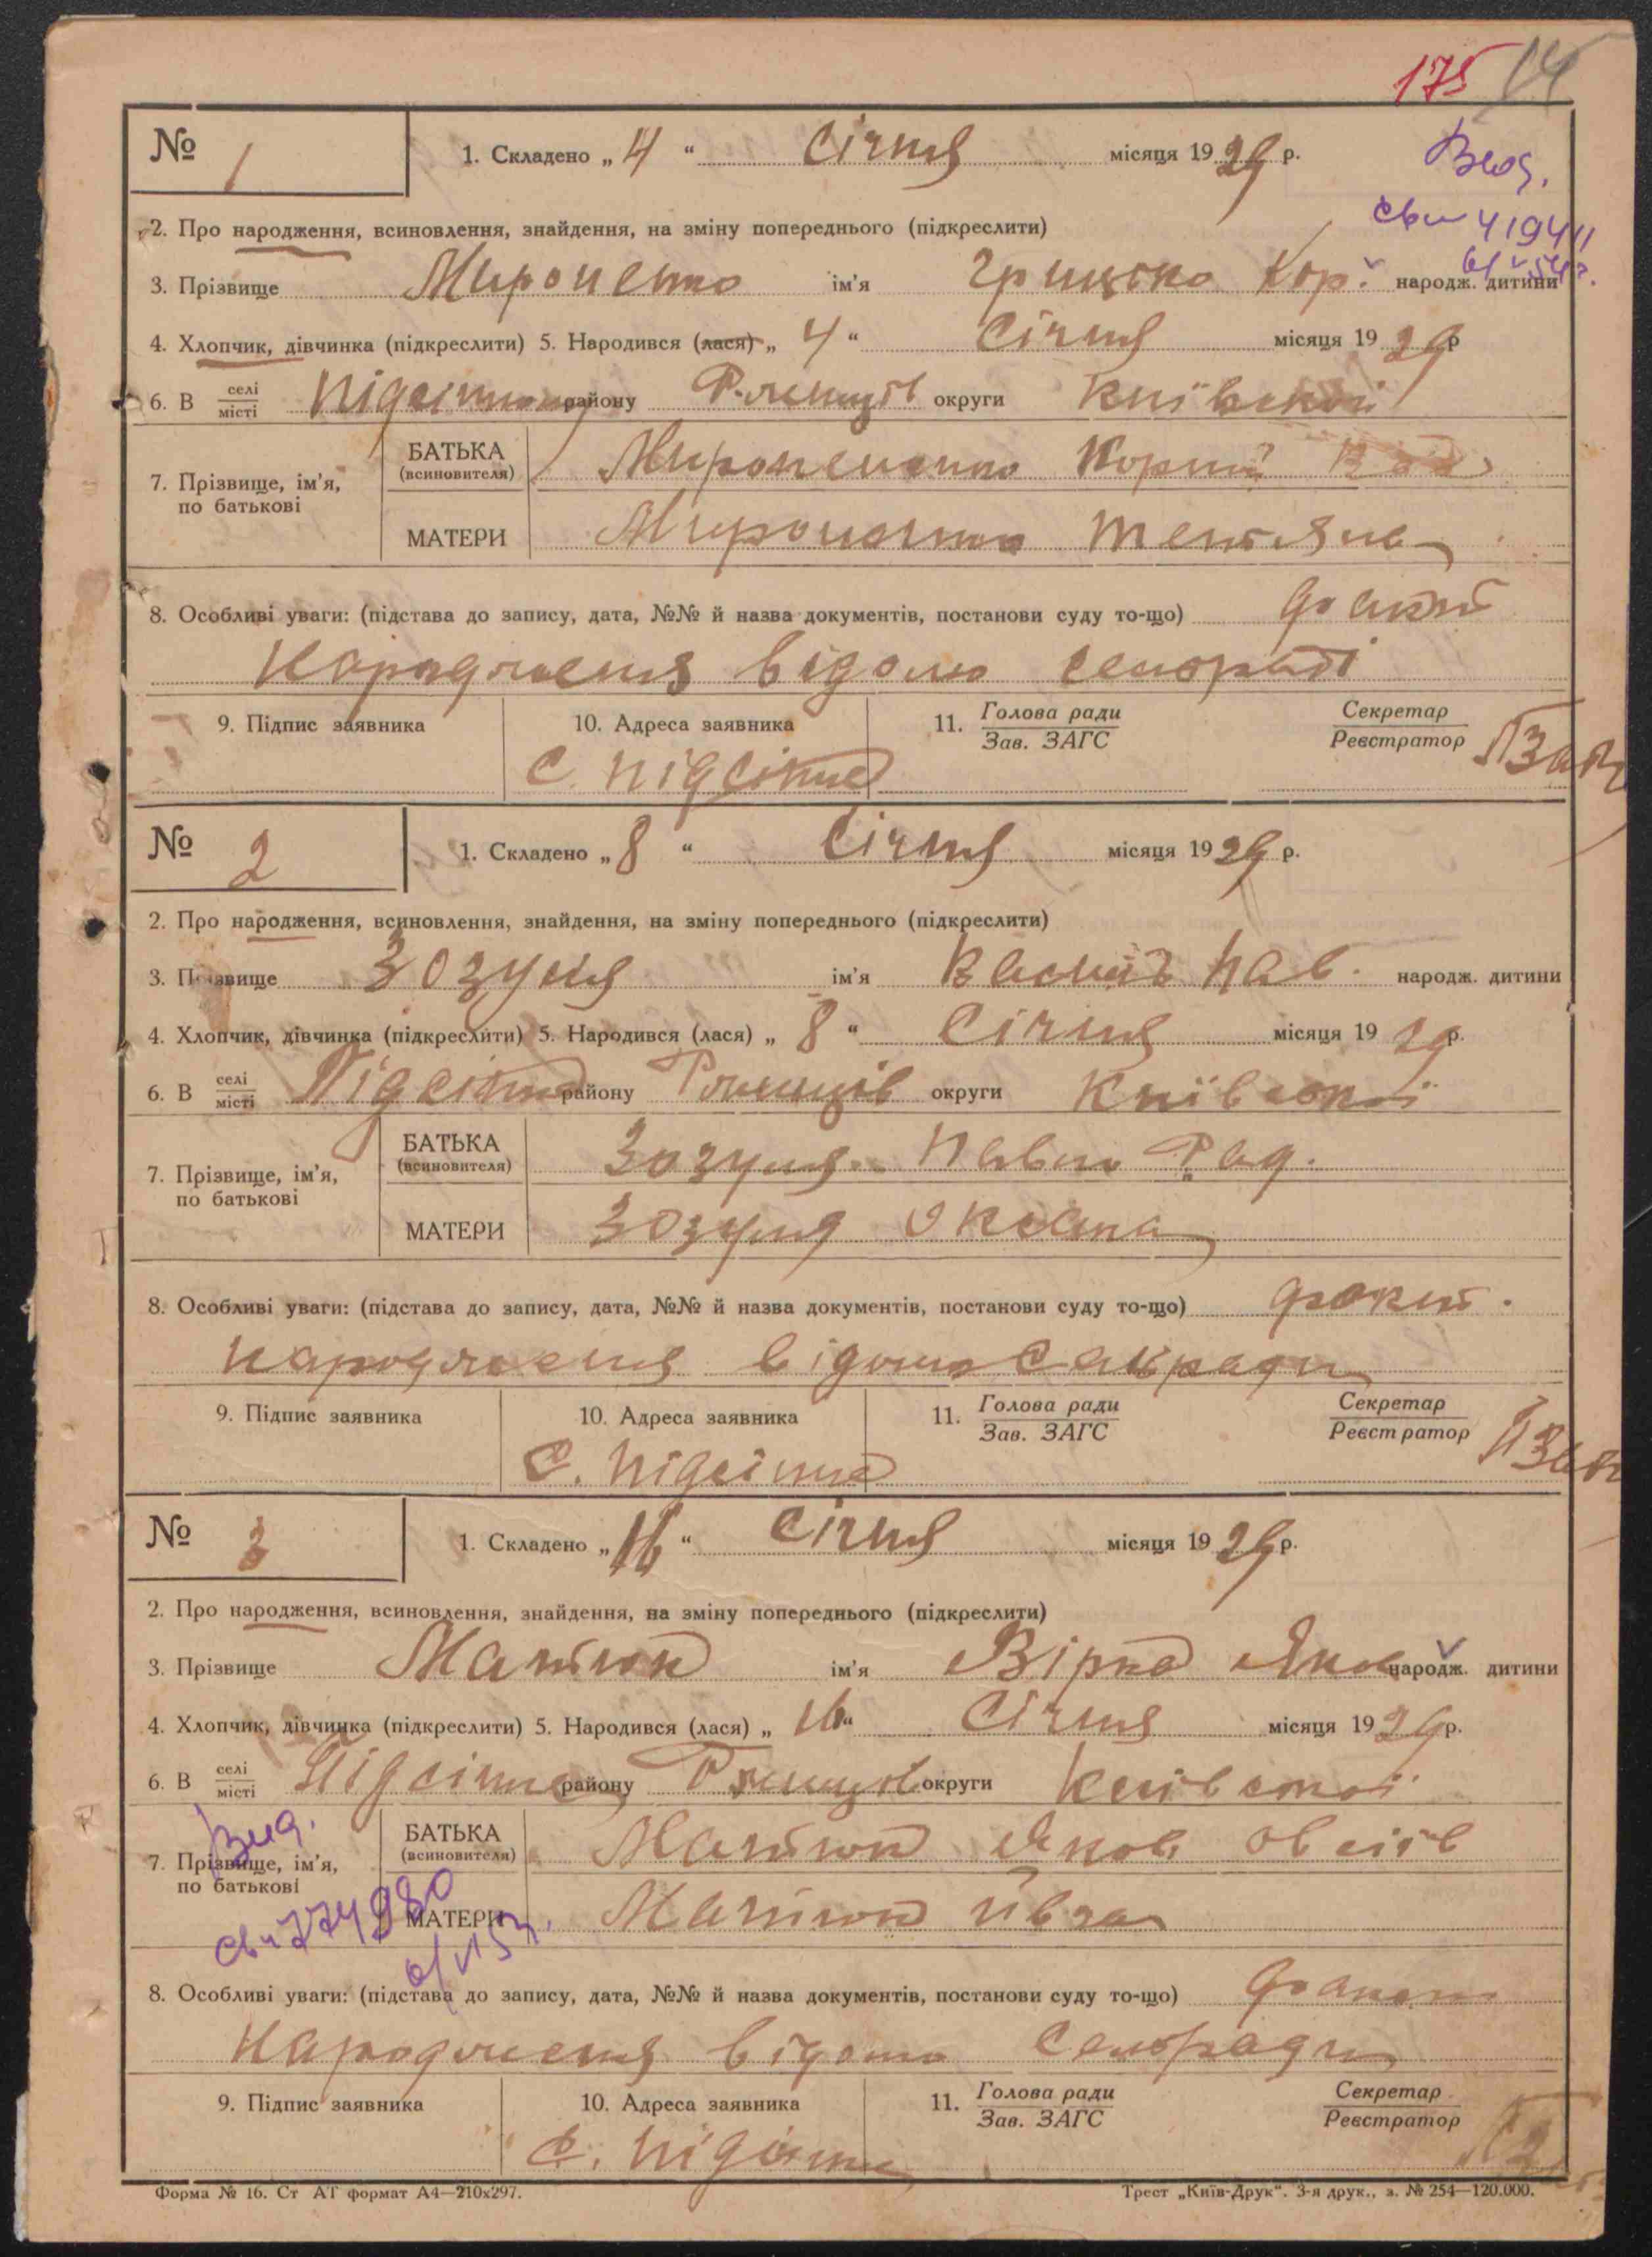 175 14
№ 1
1. Складено „4“ Січня місяця 1929 р.
Вид.
2. Про народження, всиновлення, знайдення, на зміну попереднього (підкреслити)
3. Прізвище Мироненко ім'я Грицько Кор. народж. дитини
4. Хлопчик, дівчинка (підкреслити) 5. Народився (лася) „4“ Січня місяця 1929 р
6. В селі/місті району округи Київської
7. Прізвище, ім'я, по батькові
БАТЬКА (всиновителя) Мироненко Корній
МАТЕРИ Мироненко Тетяна
8. Особливі уваги: (підстава до запису, дата, №№ й назва документів, постанови суду то-що)
Народження відомо сельраді
9. Підпис заявника 10. Адреса заявника 11. Голова ради/Зав. ЗАГС Секретар/Реєстратор
с. Підсінне
№ 2
1. Складено „8“ Січня місяця 1929 р.
2. Про народження, всиновлення, знайдення, на зміну попереднього (підкреслити)
3. Прізвище Зозуля ім'я Василь Пав. народж. дитини
4. Хлопчик, дівчинка (підкреслити) 5. Народився (лася) „8“ Січня місяця 1929 р.
6. В селі/місті Підсінне району округи Київської
7. Прізвище, ім'я, по батькові
БАТЬКА (всиновителя) Зозуля Павло Рад.
МАТЕРИ Зозуля Оксана
8. Особливі уваги: (підстава до запису, дата, №№ й назва документів, постанови суду то-що)
Народження відомо Сельради
9. Підпис заявника 10. Адреса заявника 11. Голова ради/Зав. ЗАГС Секретар/Реєстратор
с. Підсінне
№ 3
1. Складено „16“ Січня місяця 1929 р.
2. Про народження, всиновлення, знайдення, на зміну попереднього (підкреслити)
3. Прізвище Матюк ім'я Вірка Яков народж. дитини
4. Хлопчик, дівчинка (підкреслити) 5. Народився (лася) „16“ Січня місяця 1929 р.
6. В селі/місті Підсінне району округи Київської
Вид.
7. Прізвище, ім'я, по батькові
БАТЬКА (всиновителя) Матюк Яков
МАТЕРИ Матюк Ївга
8. Особливі уваги: (підстава до запису, дата, №№ й назва документів, постанови суду то-що)
Народження відомо Сельради
9. Підпис заявника 10. Адреса заявника 11. Голова ради/Зав. ЗАГС Секретар/Реєстратор
с. Підсінне
Форма № 16. Ст АТ формат А4—210х297. Трест „Київ-Друк“. 3-я друк., з. № 254—120.000.